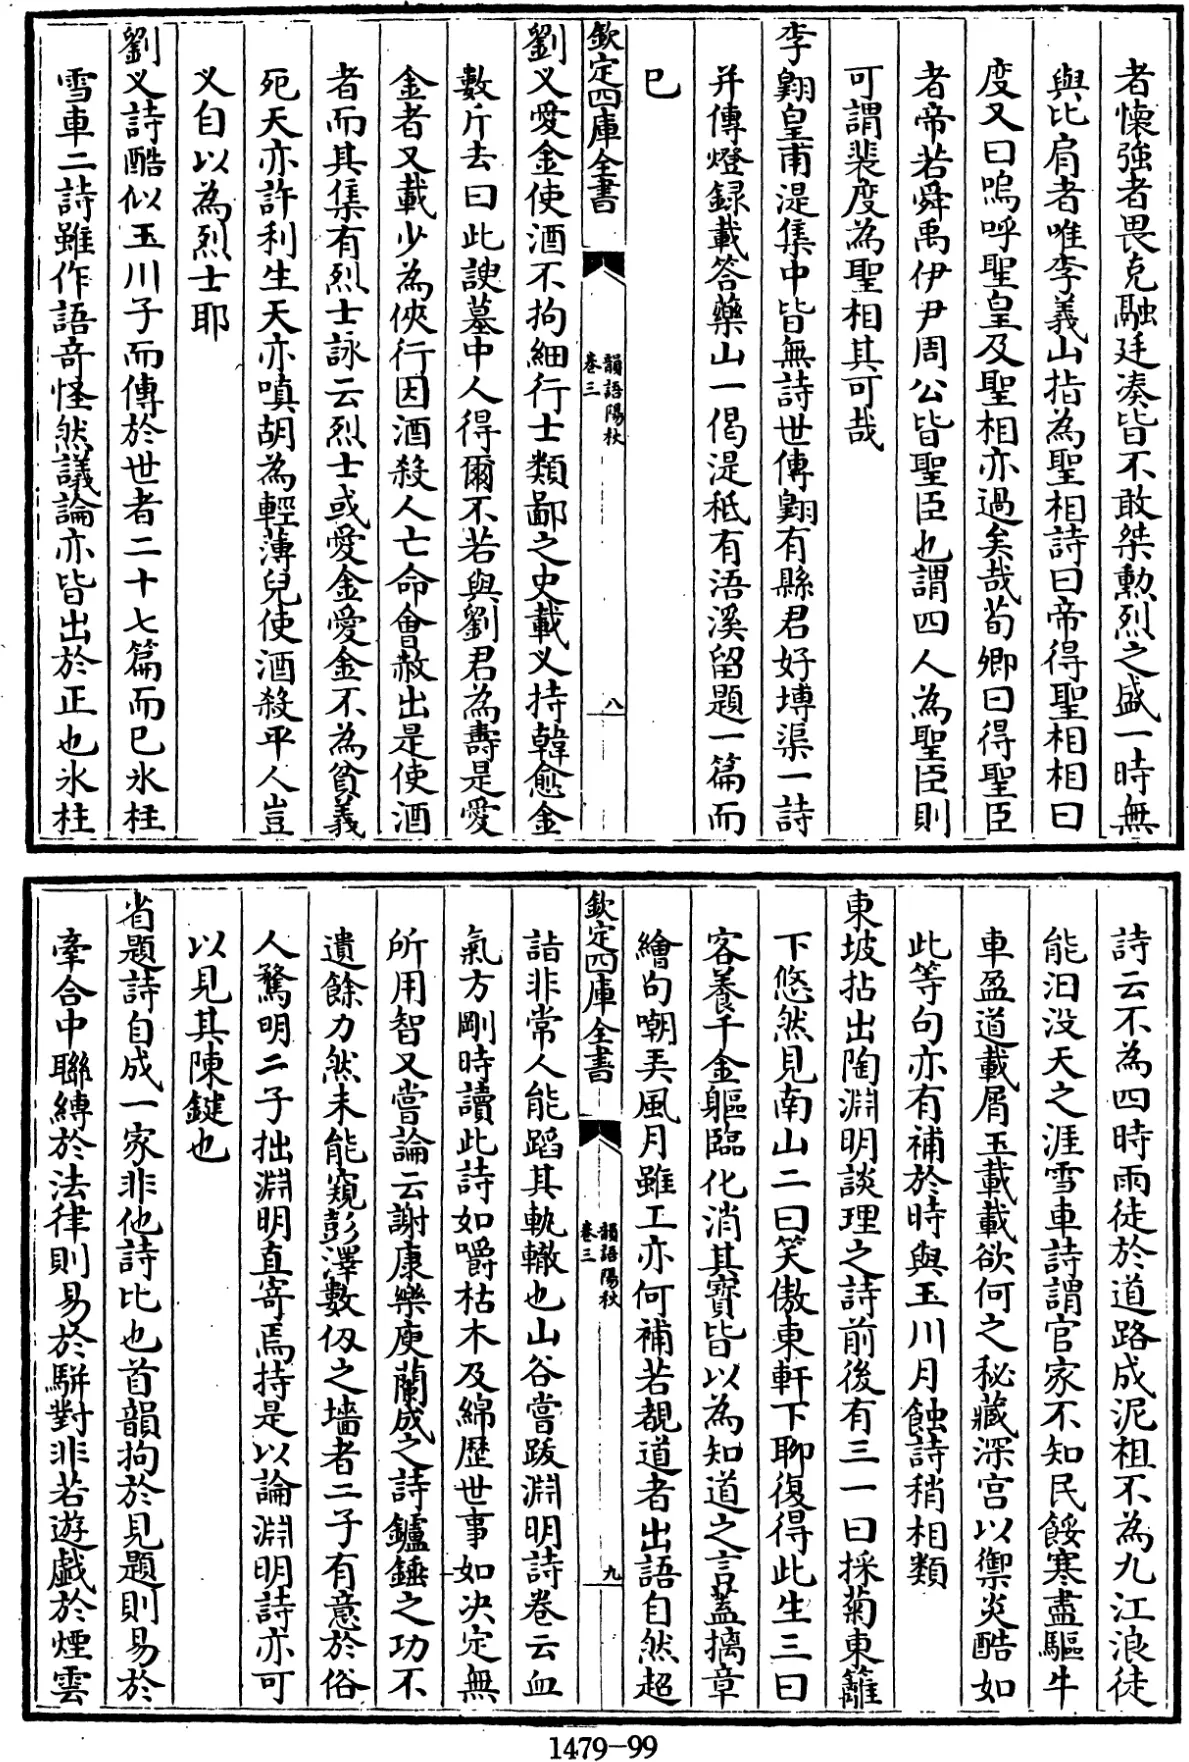 者懷強者畏克融廷湊皆不敢桀勲烈之盛一時無
與比肩者唯李義山指為聖相詩曰帝得聖相相曰
度又曰嗚呼聖皇及聖相亦過矣哉荀卿曰得聖臣
者帝若舜禹伊尹周公皆聖臣也謂四人為聖臣則
可謂裴度為聖相其可哉
李翺皇甫湜集中皆無詩世傳翺有縣君好塼渠一詩
并傳燈録載答藥山一偈湜秪有浯溪留題一篇而
已
欽定四庫全書
韻語陽秋
卷三
八
劉乂愛金使酒不拘細行士類鄙之史載乂持韓愈金
數斤去曰此諛墓中人得爾不若與劉君為壽是愛
金者又載少為俠行因酒殺人亡命會赦出是使酒
者而其集有烈士詠云烈士或愛金愛金不為貧義
死天亦許利生天亦嗔胡為輕薄兒使酒殺平人豈
乂自以為烈士耶
劉乂詩酷似玉川子而傳於世者二十七篇而已氷柱
雪車二詩雖作語竒怪然議論亦皆出於正也氷柱
詩云不為四時雨徒於道路成泥柤不為九江浪徒
能汩没天之涯雪車詩謂官家不知民餒寒盡驅牛
車盈道載屑玉載載欲何之秘藏深宫以禦炎酷如
此等句亦有補於時與玉川月蝕詩稍相類
東坡拈出陶淵明談理之詩前後有三一曰採菊東籬
下悠然見南山二曰笑傲東軒下聊復得此生三曰
客養千金軀臨化消其寳皆以為知道之言蓋摛章
繪句嘲弄風月雖工亦何補若覩道者出語自然超
欽定四庫全書
韻語陽秋
卷三
九
詣非常人能蹈其軌轍也山谷嘗跋淵明詩卷云血
氣方剛時讀此詩如嚼枯木及綿歴世事如决定無
所用智又嘗論云謝康樂庾蘭成之詩鑪錘之功不
遺餘力然未能窺彭澤數仭之墻者二子有意於俗
人驚明二子拙淵明直寄焉持是以論淵明詩亦可
以見其陳鍵也
省題詩自成一家非他詩比也首韻拘於見題則易於
牽合中聯縛於法律則易於駢對非若遊戯於煙雲
1479-99